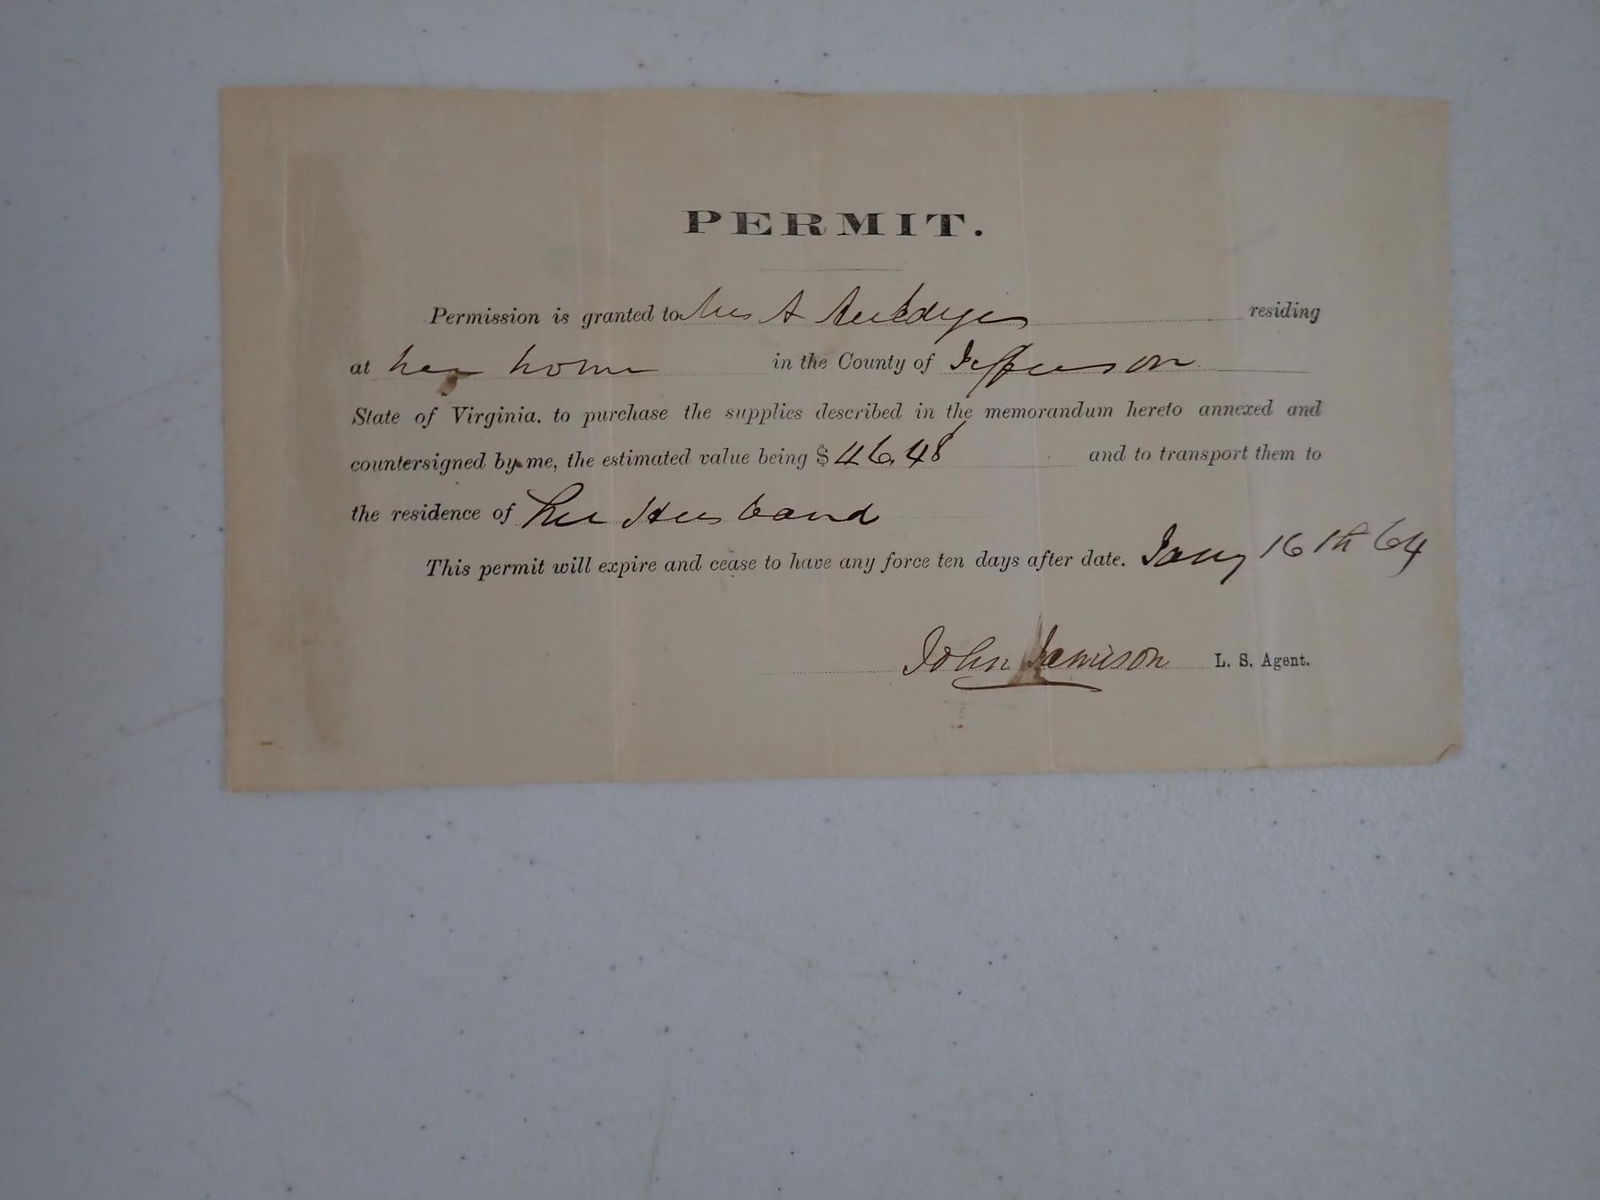 PERMIT.
Permission is granted to Mrs A residing
at her home in the County of Jefferson
State of Virginia. to purchase the supplies described in the memorandum hereto annexed and
countersigned by me, the estimated value being $46.48 and to transport them to
the residence of her Husband
This permit will expire and cease to have any force ten days after date. Jany 16th 64
John Jamison L. S. Agent.